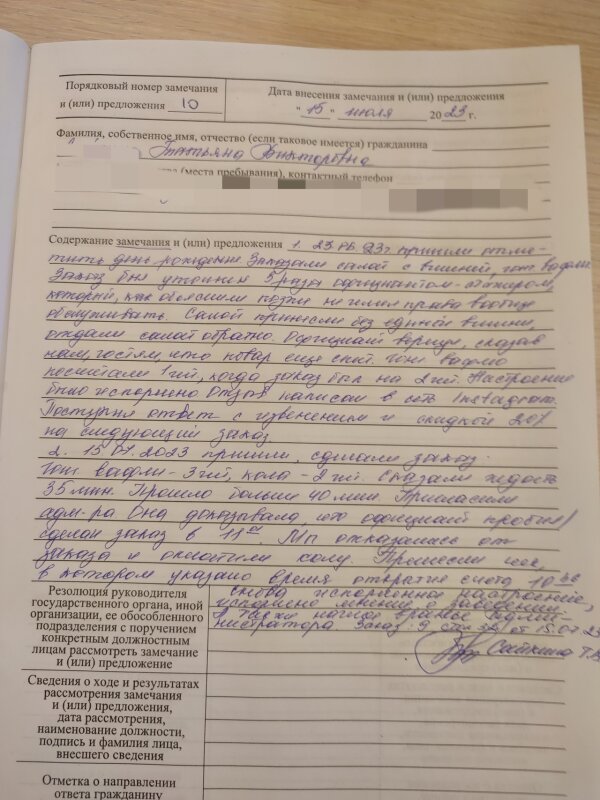 Порядковый номер замечания
и (или) предложения 10
Дата внесения замечания и (или) предложения
" 15 " июля 2023 г.
Фамилия, собственное имя, отчество (если таковое имеется) гражданина
Татьяна Викторовна
(места пребывания), контактный телефон
Содержание замечания и (или) предложения 1. 23.06.23г пришли отме-
тить день рождения Заказали салат с вишней, тот вафли.
Заказ был уточнен 5 раз официантом-стажиром,
который, как объяснили позже не имел права вообще
обслуживать. Салат принесли без единой вишни,
отдали салат обратно. Официант вернул, сказав
нам, гостям, что повар еще спит. Тот вафлю
посчитали 1 гей, когда заказ был на 2 гей. Настроение
было испорчено Отзыв написали в сеть Instagram.
Поступил ответ с извенением и скидкой 20%
на следующий заказ
2. 15.07.2023 пришли, сделали заказ.
Тот вафли - 3 гей, кола - 2 гей. Сказали ждать
35 мин. Прошло больше 40 мин. Пригласили
адм-ра. Она доказывала, что официант пробил/
сделал заказ в 11 Мы отказались от
заказа и оплатили колу. Принесли чек,
в котором указано время открытие счета 10
Резолюция руководителя
государственного органа, иной
организации, ее обособленного
подразделения с поручением
конкретным должностным
лицам рассмотреть замечание
и (или) предложение
снова испорченное настроение,
испорчено мнение о заведении.
наглая вранье админ-
нистратора Заказ: 9 от 15.07.23
Сайкина Т.В
Сведения о ходе и результатах
рассмотрения замечания
и (или) предложения,
дата рассмотрения,
наименование должности,
подпись и фамилия лица,
внесшего сведения
Отметка о направлении
ответа гражданину